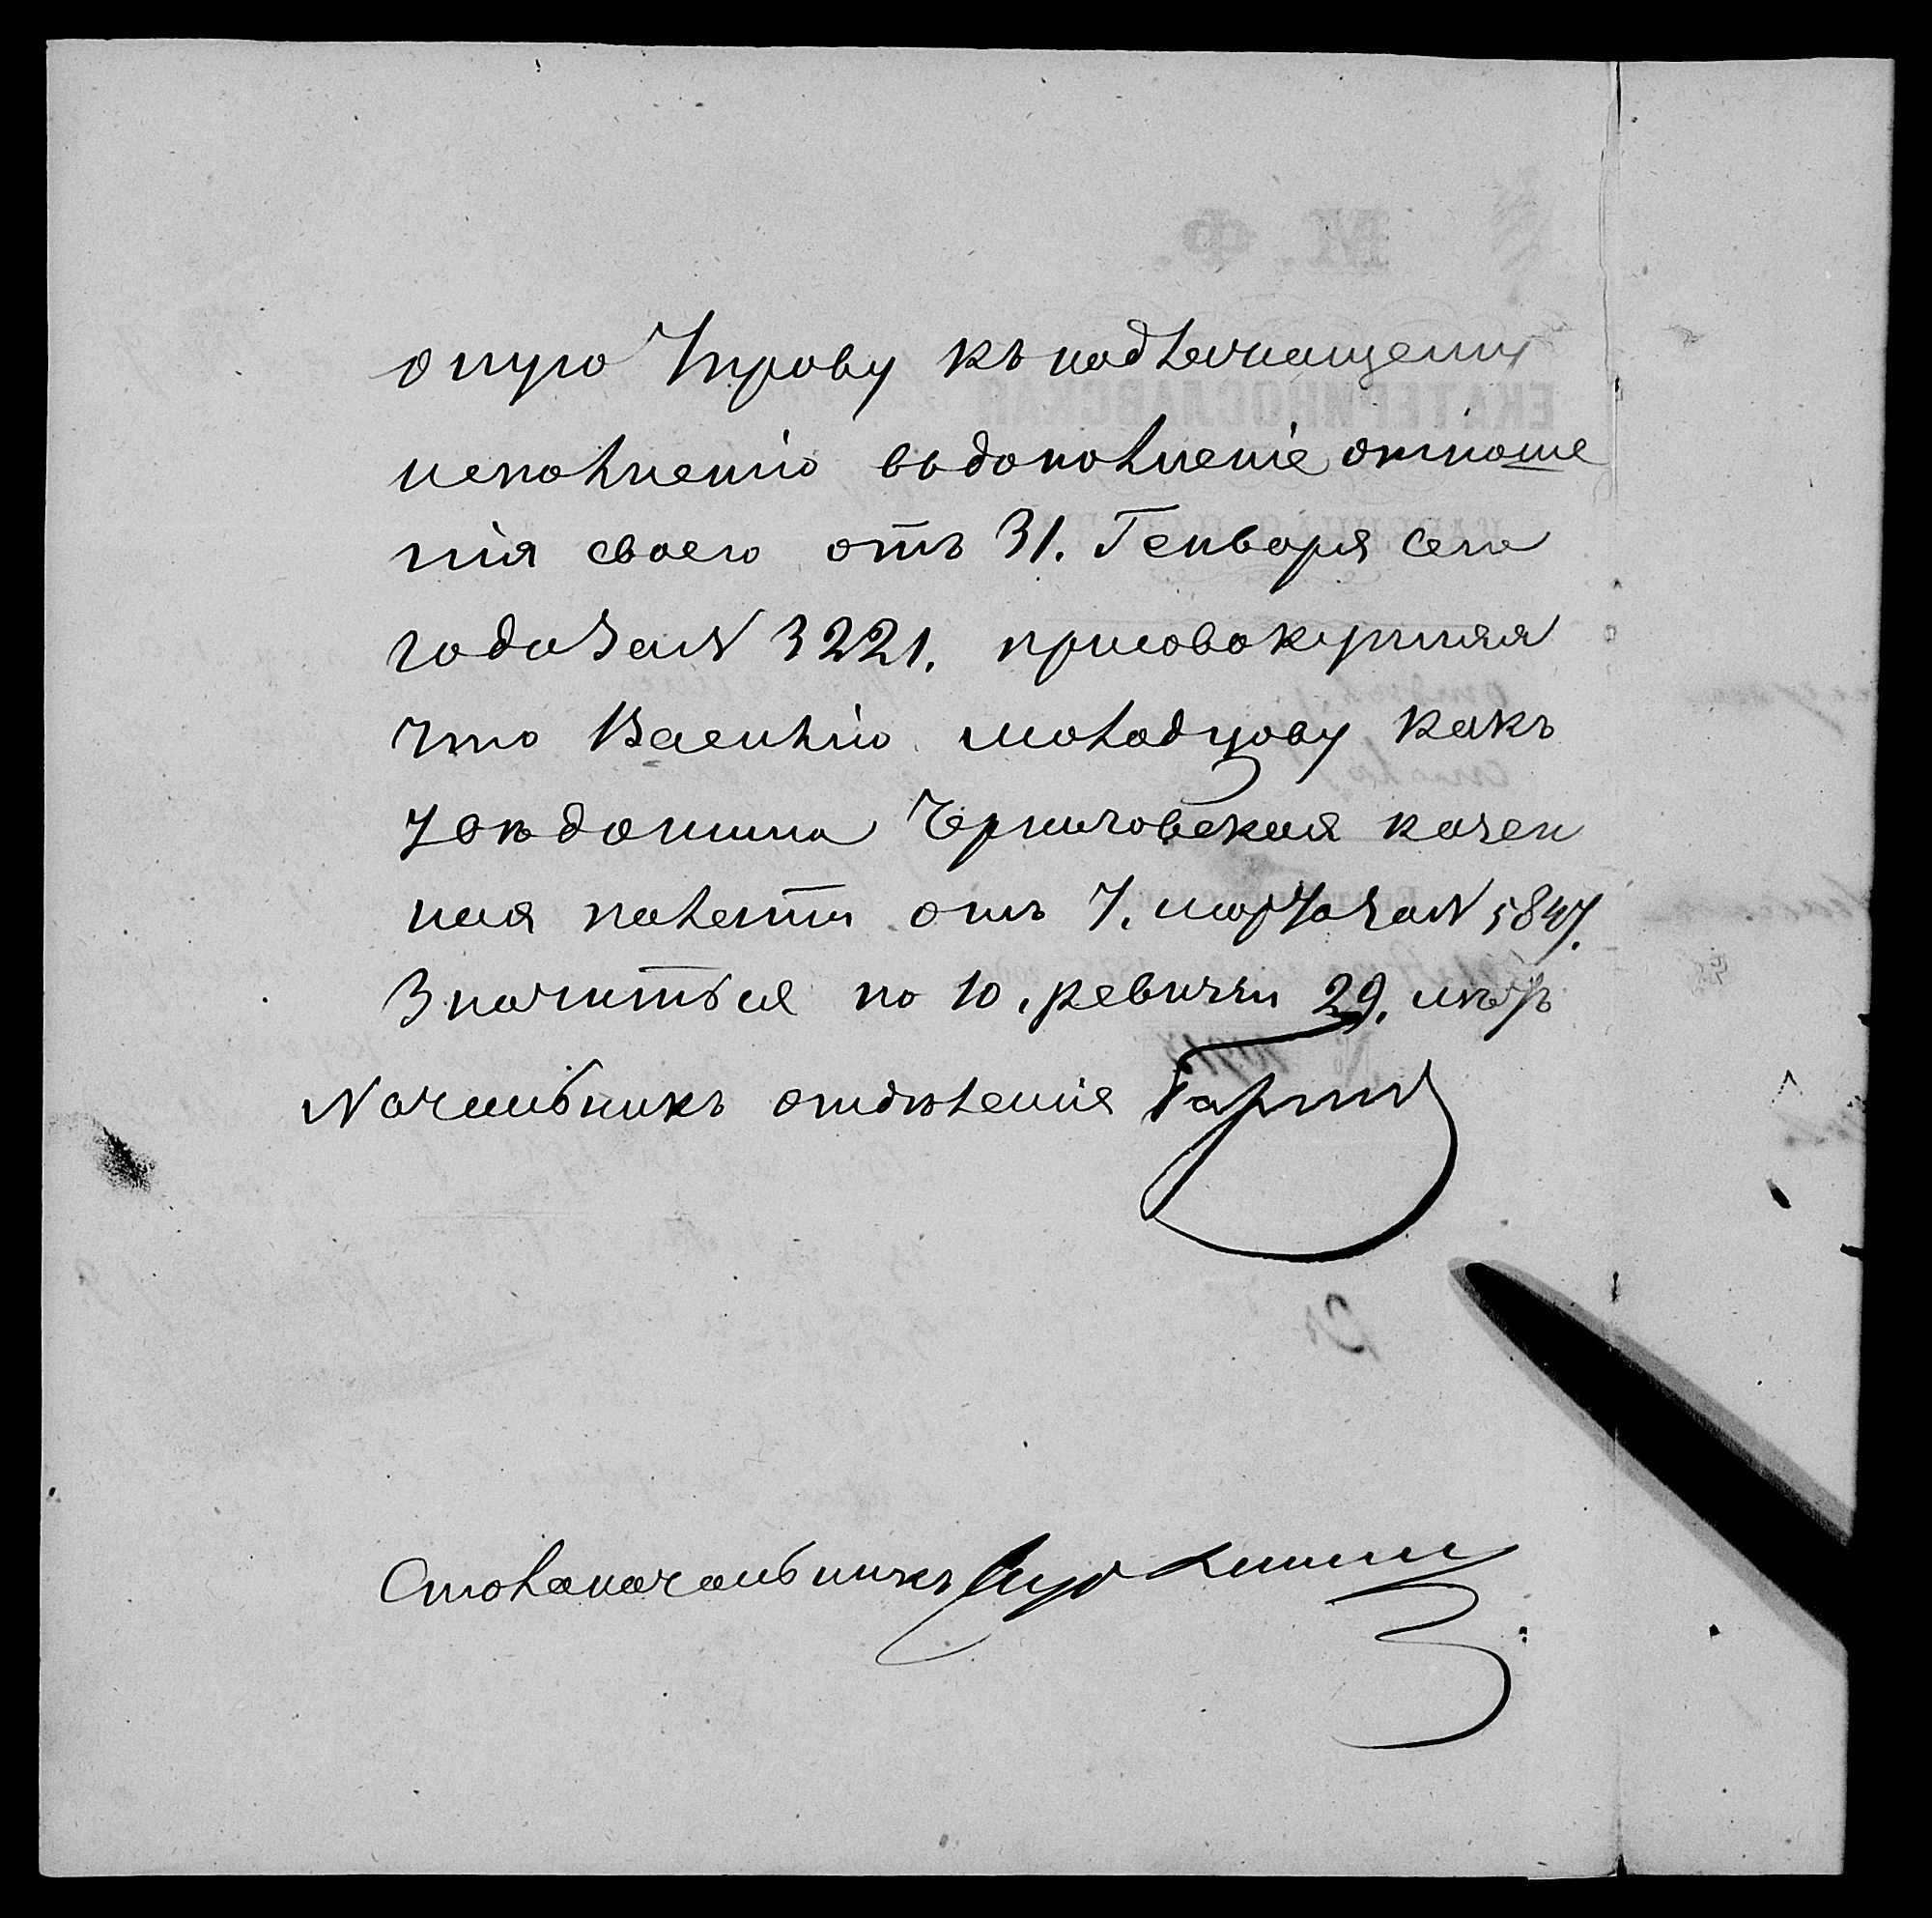 оную Управу къ надлежащему
исполненію въ дополненіе отноше
нія своего отъ 31. Генваря сего
года за № 3221. присовокупляя
что Василію Молодцову какъ
увѣдомила Черниговская казен
ная палата отъ 7. марта за № 5847.
значиться по 10. ревизіи 29. лѣтъ
Начальникъ отдѣленія
Столоначальникъ
М. Ф.
ЕКАТЕРИНОСЛАВСКАЯ